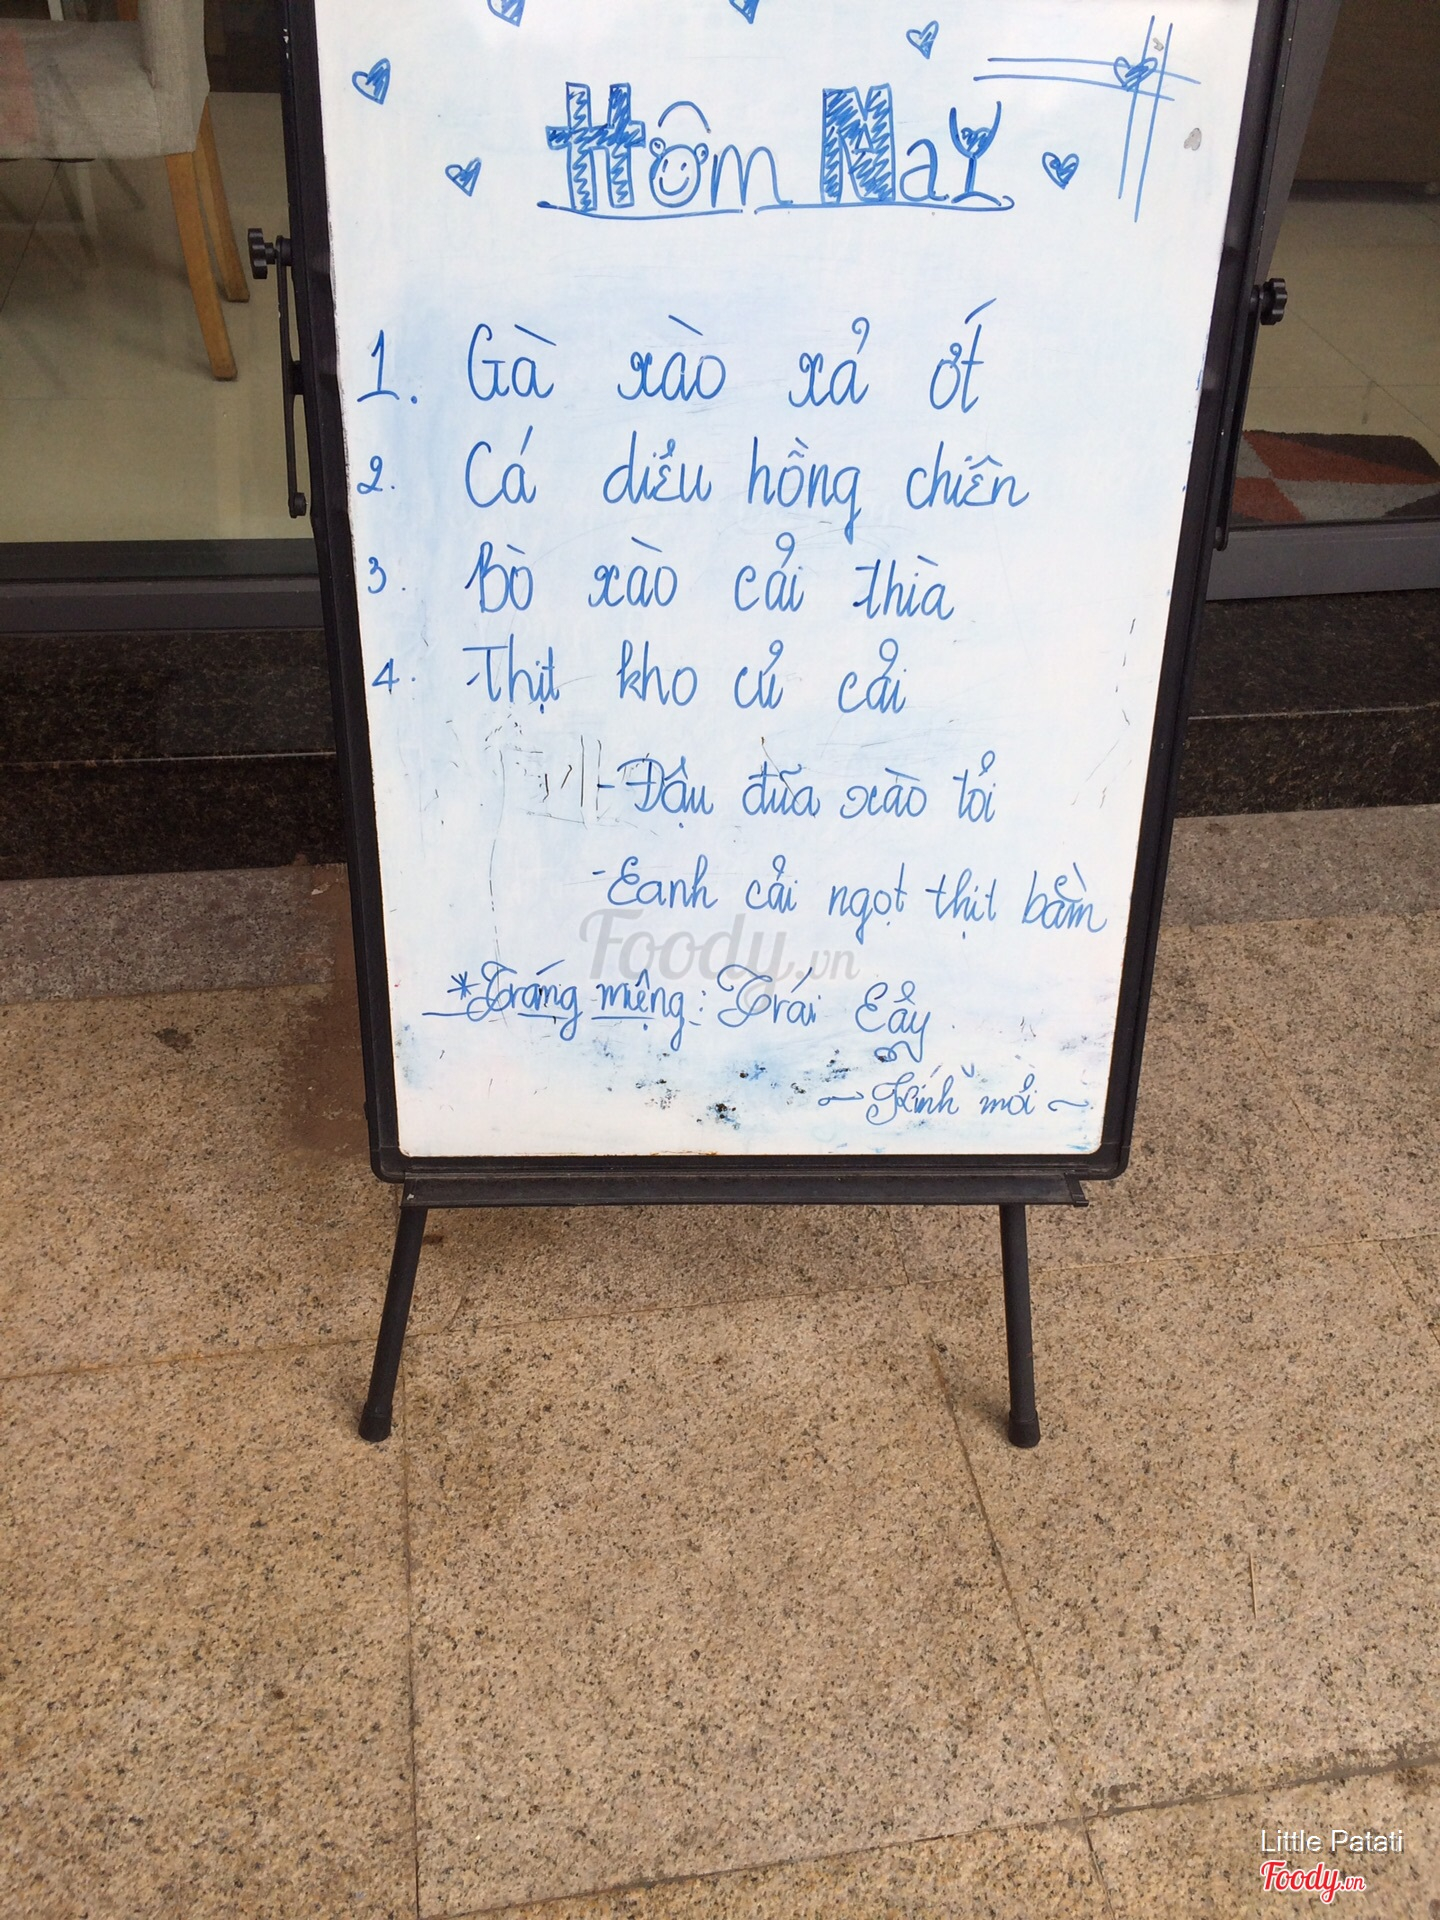 Hôm Nay
1. Gà xào xả ớt
2. Cá diểu hồng chiên
3. Bò xào cải thìa
4. Thịt kho củ cải
- Đậu đũa xào tỏi
- Canh cải ngọt thịt bằm
Foody.vn
* Tráng miệng: Trái Cây
~ Kính mời ~
Little Patati
Foody.vn